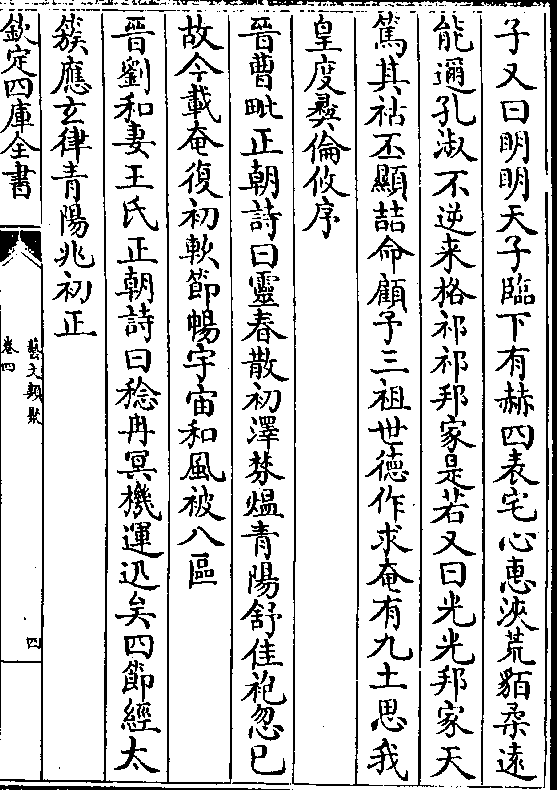 子又曰明明天子臨下有赫四表宅心惠浹荒貊柔遠
能邇孔淑不逆来格祁祁邦家是若又曰光光邦家天
篤其祜丕顯喆命顧予三祖世德作求奄有九土思我
皇度彝倫攸序
晉曹毗正朝詩曰靈春散初澤棼熅青陽舒佳袍忽已
故今載奄復初軟節暢宇宙和風被八區
晉劉和妻王氏正朝詩曰稔冉冥機運迅矣四節經太
簇應玄律青陽兆初正
欽定四庫全書
藝文類聚
卷四
四